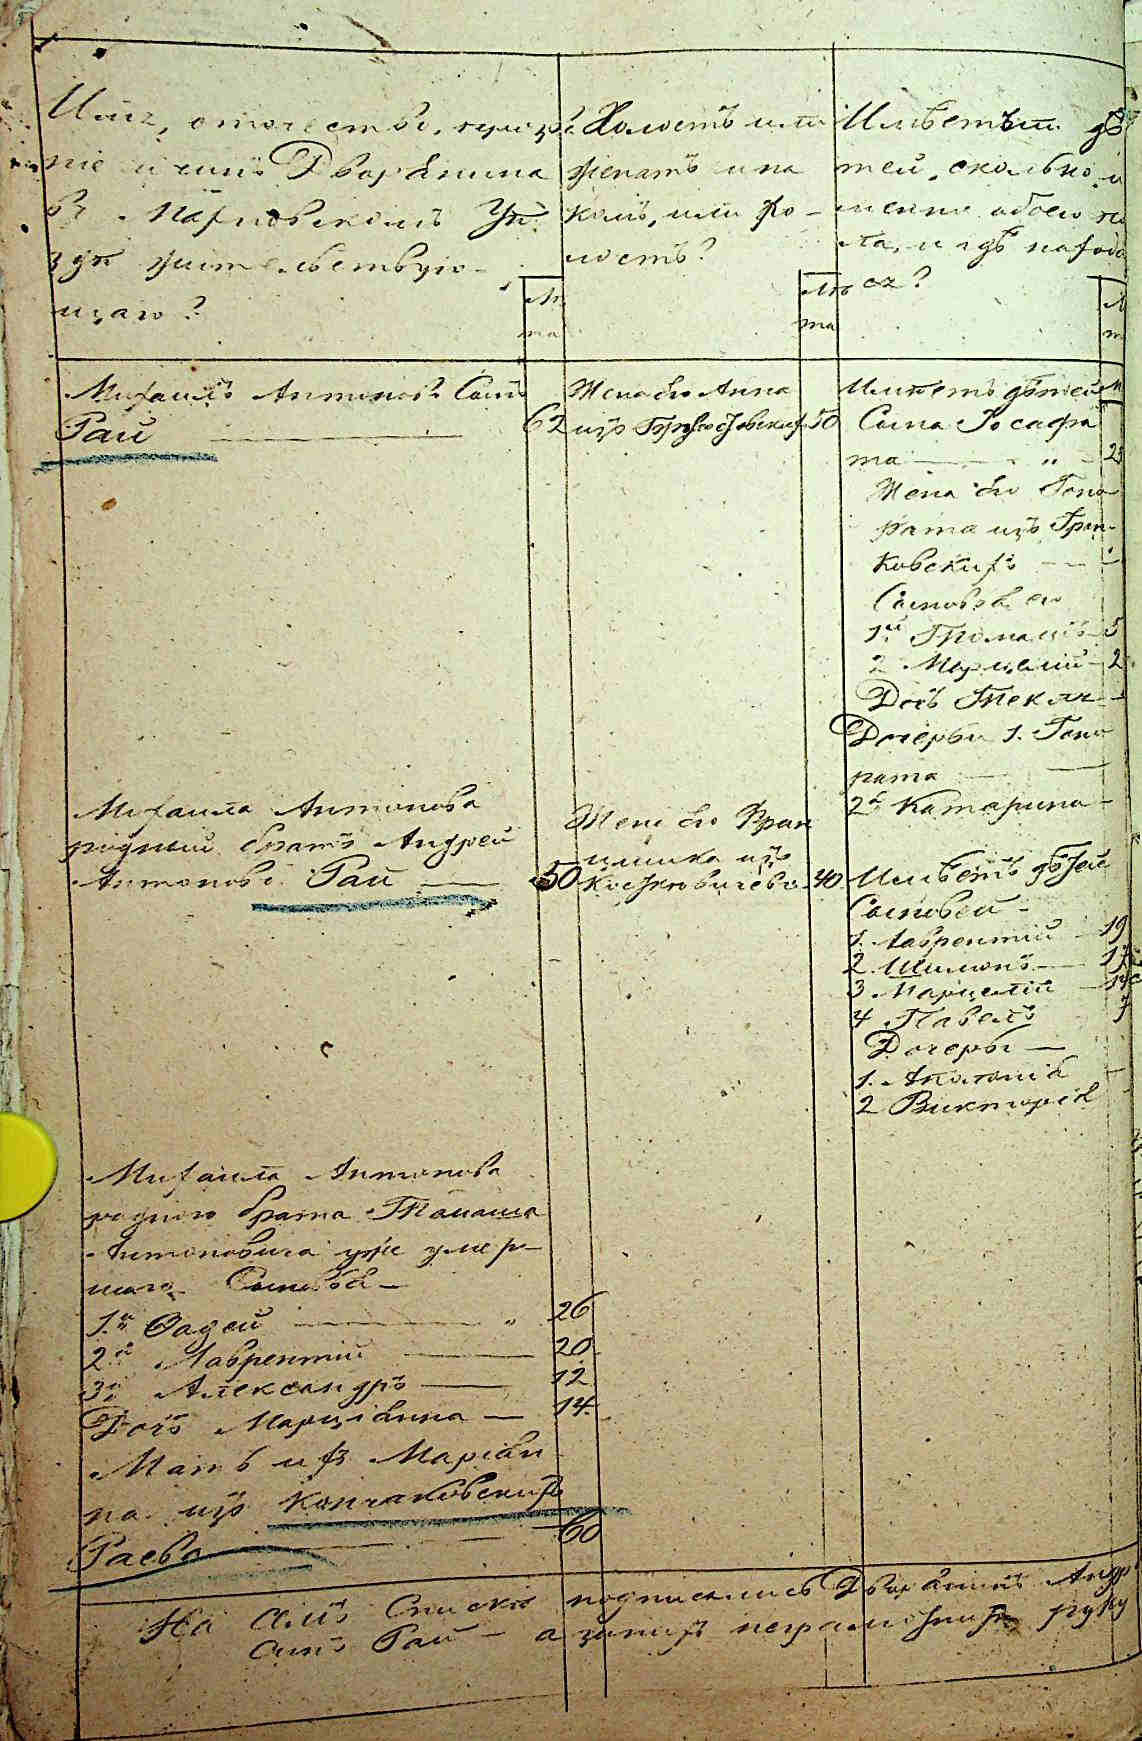 Имя, отчество,
ніе и чинъ Дворянина
въ Махновскомъ Уѣ
здѣ жительствую-
щаго?
Лѣ
та
Холостъ или
женатъ и на
комъ, или хо-
лостъ?
Лѣ
та
Имѣетъ ли дѣ
тей, сколько, и
именно обоего по
ла, и гдѣ
ся?
Михаилъ Антоновъ Сынъ
Рай 62
Жена его Анна
изъ 50
Имѣетъ дѣтей
Сына Іосафа
та 23
Жена его Гоно
рата изъ
ковскихъ
Сыновья его
1й Томашъ 5
2 Марцелій 2
Дочь Текля
Дочерьи 1. Гоно
рата
2я Катарина
Михаила Антонова
родный братъ Андрей
Антоновъ Рай 50
Жена его Фран
цишка изъ
40
Имѣетъ дѣтей
Сыновей
1. Лаврентій 19
2. Шимонъ 17
3. Марцелій 14
4 Павелъ 7
Дочеры
1. Аполонія
2 Викторія
Михаила Антонова
родного брата Томаша
Антоновича уже умер-
шаго Сыновья
1й Фадей 26
2й Лаврентій 20
3й Александръ 12
Дочь Марціанна 14
Мать ихъ Маріан
на изъ Кончаковскихъ
Раева 60
На семъ Списке подписались Дворянинъ Андр
Сынъ Рай а за нихъ неграмотныхъ руку